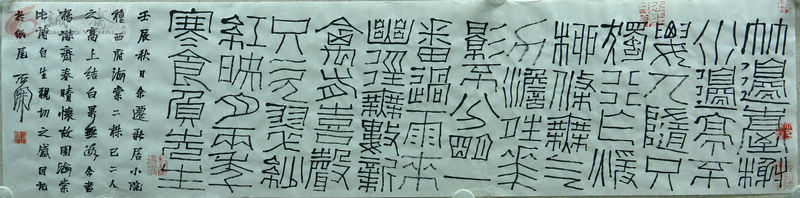 竹邊臺榭
水邊亭不
要人隨只
獨行乍暖
柳條無氣
力澹晴花
影不分明一
番過雨來
幽徑無數新
禽有喜聲
只欠翠紗
紅映肉兩年
寒食負先生
壬辰秋日余遷新居小院
種西府海棠二株已二人
之高上結白果無數今書
楊誠齋春晴懷故園海棠
詩陡自生親切之感因記
於紙尾